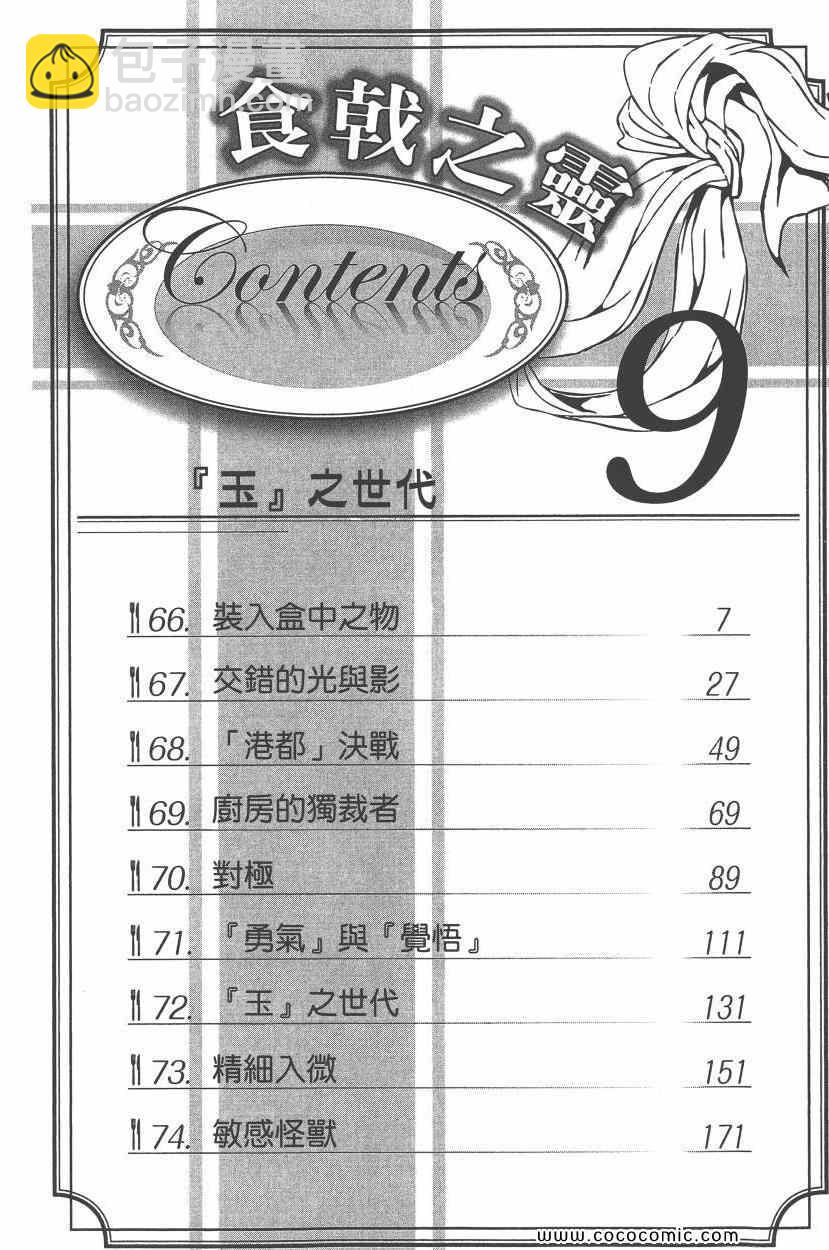 包子漫畫
baozimh.com
食戟之靈
Contents
9
『玉』之世代
66. 裝入盒中之物 7
67. 交錯的光與影 27
68. 「港都」決戰 49
69. 廚房的獨裁者 69
70. 對極 89
71. 『勇氣』與『覺悟』 111
72. 『玉』之世代 131
73. 精細入微 151
74. 敏感怪獸 171
www.cococomic.com